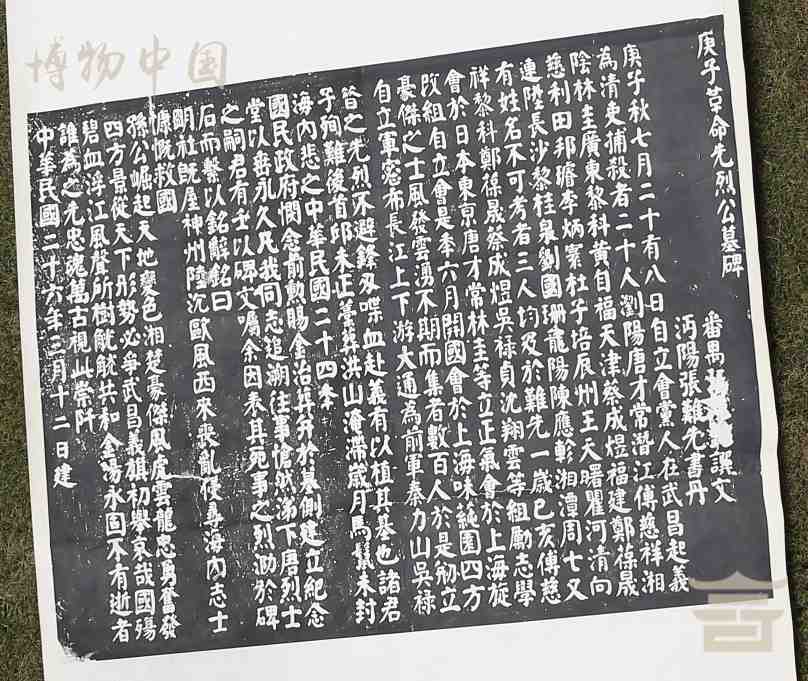 庚子革命先烈公墓碑
番禺譔文
沔陽張難先書丹
庚子秋七月二十有八日自立會黨人在武昌起義
為清吏捕殺者二十人瀏陽唐才常潛江傅慈祥湘
陰林圭廣東黎科黃自福天津蔡成煜福建鄭葆晟
慈利田邦璿李炳寰杜子培辰州王天曙瞿河清向
連陞長沙黎桂泉劉國珊龍陽陳應軫湘潭周七又
有姓名不可考者三人均及於難先一歲己亥傅慈
祥黎科鄭葆晟蔡成煜吳祿貞沈翔雲等組勵志學
會於日本東京唐才常林圭等立正氣會於上海旋
改組自立會是季六月開國會於上海味蒓園四方
豪傑之士風發雲湧不期而集者數百人於是刱立
自立軍密布長江上下游大通為前軍秦力山吳祿
皆之先烈不避鋒刃喋血赴義有以植其基也諸君
子殉難後首邱未正藁葬洪山淹滯歲月馬鬣未封
海內悲之中華民國二十四季
國民政府憫念前勲賜金治葬并於墓側建立紀念
堂以垂永久凡我同志追溯往事愴然涕下唐烈士
之嗣君有壬以碑文囑余因表其死事之烈泐於碑
石而繫以銘辭銘曰
明社既屋神州陸沉歐風西來喪亂侵尋海內志士
慷慨救國
孫公崛起天地變色湘楚豪傑風虎雲龍忠勇奮發
四方景從天下形勢必爭武昌義旗初舉哀哉國殤
碧血浮江風聲所樹皝皝共和金湯永固不有逝者
誰為之先忠魂萬古視此崇阡
中華民國二十六年三月十二日建
博物中国